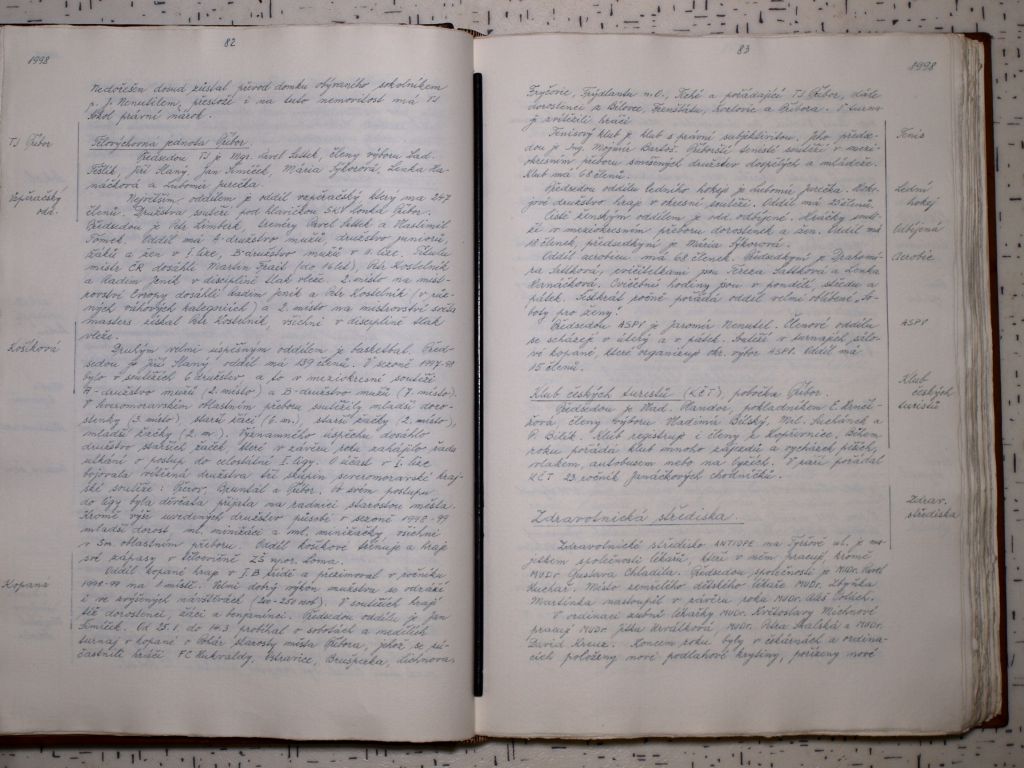 82
1998
Nedořešen dosud zůstal převod domku obývaného sokolníkem
p. J. Nenutilem, přestože i na tuto nemovitost má TJ
Sokol právní nárok.
TJ Příbor
Tělovýchovná jednota Příbor.
Předsedou TJ je Mgr. Pavel Lešek, členy výboru Lad.
Pešlík, Jiří Slaný, Jan Šimíček, Mária Sýkorová, Lenka Ha-
náčková a Lubomír Jurečka.
Vzpěračský
odd.
Největším oddílem je oddíl vzpěračský, který má 247
členů. Družstva soutěží pod hlavičkou SKV Lonka Příbor.
Předsedou je Petr Kimbrek, trenéry Pavel Lešek a Vlastimil
Tomek. Oddíl má A-družstvo mužů, družstvo juniorů,
žáků a žen v I. lize, B-družstvo mužů v II. lize. Titulu
mistr ČR dosáhli Martin Frait (do 16 let), Petr Kostelník
a Radim Jeník v disciplíně tlak vleže. 2. místo na mist-
rovství Evropy dosáhli Radim Jeník a Petr Kostelník (v růz-
ných váhových kategoriích) a 2. místo na mistrovství světa
masters získal Petr Kostelník, všichni v disciplíně tlak
vleže.
Košíková
Druhým velmi úspěšným oddílem je basketbal. Před-
sedou je Jiří Slaný, oddíl má 189 členů. V sezoně 1997-98
bylo v soutěžích 6 družstev a to v meziokresní soutěži
A-družstvo mužů (2. místo) a B-družstvo mužů (7. místo).
V Severomoravském oblastním přeboru soutěžily mladší doros-
tenky (3. místo), starší žáci (6. m.), starší žačky (2. místo),
mladší žačky (2. m.). Významného úspěchu dosáhlo
družstvo starších žaček, které v závěru roku zahájilo řadu
utkání o postup do celostátní I. ligy. O účast v I. lize
bojovala vítězná družstva tří skupin severomoravské kraj-
ské soutěže: Přerov, Bruntál a Příbor. Po svém postupu
do ligy byla děvčata přijata na radnici starostou města.
Kromě výše uvedených družstev působí v sezoně 1998-99
mladší dorost, ml. minižáci a ml. minižačky, všichni
v Sm. oblastním přeboru. Oddíl košíkové trénuje a hraje
své zápasy v tělocvičně ZŠ npor. Loma.
Kopaná
Oddíl kopané hraje v I. B třídě a přezimoval v ročníku
1998-99 na 1. místě. Velmi dobrý výkon mužstva se odráží
i ve zvýšených návštěvách (200-250 osob). V soutěžích hrají
též dorostenci, žáci a benjamínci. Předsedou oddílu je Jan
Šimíček. Od 25.1. do 14.3. probíhal v sobotách a nedělích
turnaj v kopané o Pohár starosty města Příbora, jehož se zú-
častnili hráči FC Hukvaldy, Ostravice, Brušperka, Lichnova,
83
1998
Fryčovic, Frýdlantu n.O., Tiché a pořádající TJ Příbor, dále
dorostenci z Bílovce, Frenštátu, Karlovic a Příbora. V turna-
ji zvítězili hráči
Tenis
Tenisový klub je klub s právní subjektivitou, jeho předse-
dou je Ing. Mojmír Bartoš. Příborští tenisté soutěží v mezi-
okresním přeboru smíšených družstev dospělých a mládeže.
Klub má 68 členů.
Lední
hokej
Předsedou oddílu ledního hokeje je Lubomír Jurečka. Hoke-
jové družstvo hraje v okresní soutěži. Oddíl má 25 členů.
Odbíjená
Čistě ženským oddílem je odd. odbíjené. Hráčky soutě-
ží v meziokresním přeboru dorostenek a žen. Oddíl má
18 členek, předsedkyní je Mária Sýkorová.
Aerobic
Oddíl aerobicu má 68 členek. Předsedkyní je Drahomí-
ra Sattková, cvičitelkami jsou Tereza Sattková a Lenka
Hanáčková. Cvičební hodiny jsou v pondělí, středu a
pátek. Šestkrát ročně pořádá oddíl velmi oblíbené „So-
boty pro ženy“.
ASPV
Předsedou ASPV je Jaromír Nenutil. Členové oddílu
se scházejí v úterý a v pátek. Soutěží v turnajích sálo-
vé kopané, které organizuje okr. výbor ASPV. Oddíl má
15 členů.
Klub
českých
turistů
Klub českých turistů (KČT), pobočka Příbor.
Předsedou je Vlad. Handor, pokladníkem
členy výboru Vladimír Bílský, Mil. Suchánek a
P. Bílek. Klub registruje i členy z Kopřivnice. Během
roku pořádá klub mnoho zájezdů a vycházek pěších,
vlakem, autobusem nebo na lyžích. V září pořádal
KČT 23. ročník Janáčkových chodníčků.
Zdrav.
střediska
Zdravotnická střediska.
Zdravotnické středisko ANTIOPE na Jičínské ul. je ma-
jetkem společnosti lékařů, kteří v něm pracují kromě
MUDr. Gustava Chladila. Předsedou společnosti je MUDr. Pavel
Kuchař. Místo zemřelého dětského lékaře MUDr. Zbyňka
Martinka nastoupil v závěru roku MUDr. Aleš
V ordinaci zubní lékařky MUDr. Květoslavy Michnové
pracují MUDr. Jitka Horválková, MUDr. Petra Skalská a MUDr.
David Kreuz. Koncem roku byly v čekárnách a ordina-
cích položeny nové podlahové krytiny, pořízeny nové